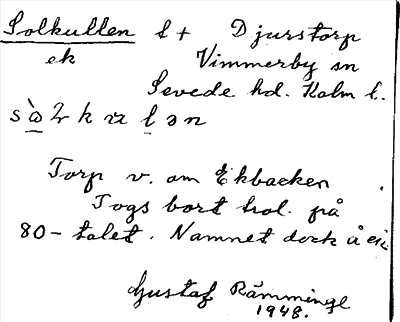 Solkullen l + Djurstorp
ek Vimmerby sn
Sevede hd. Kalm l.
Torp v. om Ekbacken
Togs bort trol. på
80-talet. Namnet dock å ek.
Gustaf Rämminge
1948.